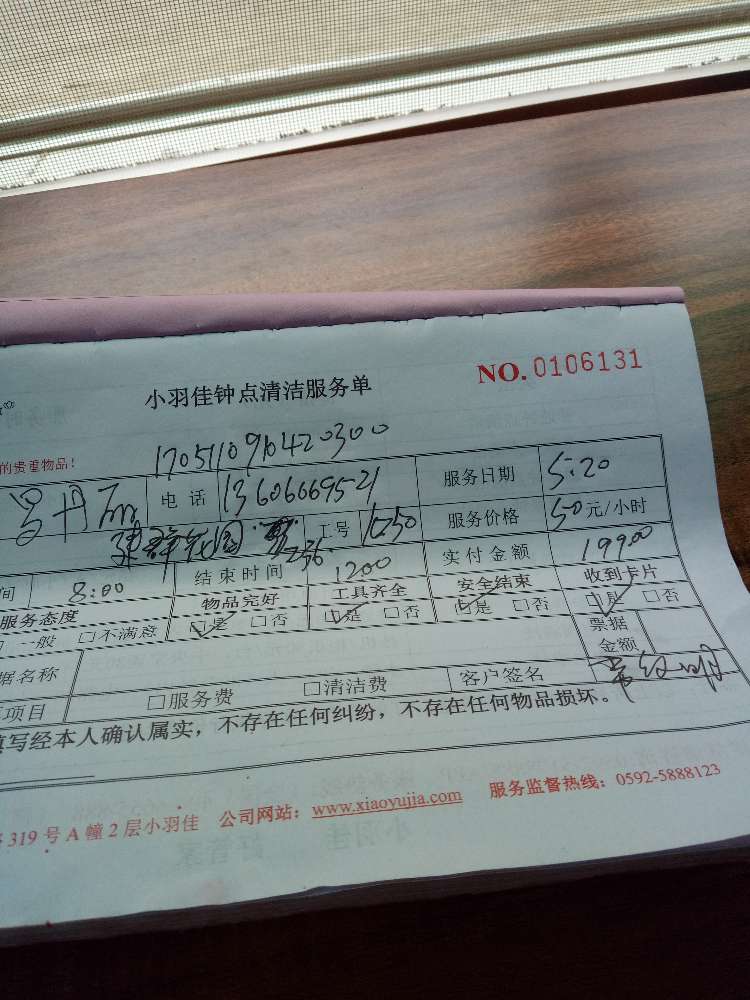 小羽佳钟点清洁服务单 NO. 0106131
的贵重物品!
1705110910420300
电话 13606069521 服务日期 5:20
工号 服务价格 50元/小时
间 8:00 结束时间 1200 实付金额 199.00
服务态度 物品完好 工具齐全 安全结束 收到卡片
一般 □不满意 □是 □否 □是 □否 □是 □否 □是 □否
据名称 票据金额
项目 □服务费 □清洁费 客户签名
填写经本人确认属实,不存在任何纠纷,不存在任何物品损坏。
319号A幢2层小羽佳 公司网站:www.xiaoyujia.com 服务监督热线:0592-5888123